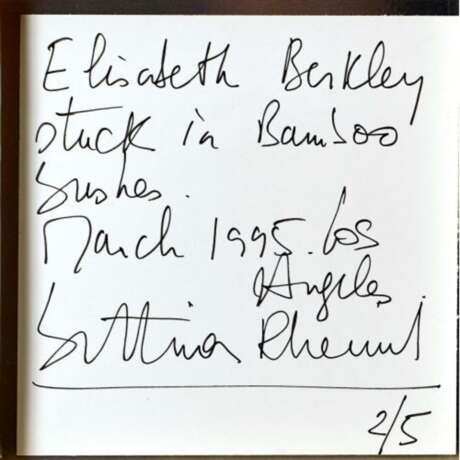 Elisabeth Berkley
stuck in Bamboo
bushes.
March 1995. Los
Angeles.
Bettina Rheims
2/5